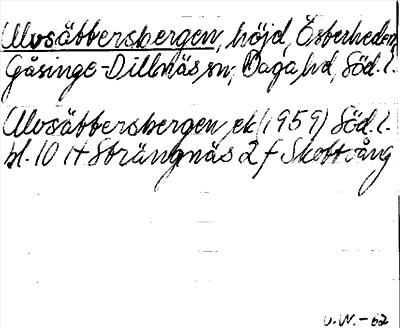 Ulvsättersbergen, höjd, Österheden,
Gåsinge-Dillnäs sn, Daga hd, Söd. l.
Ulvsättersbergen, ek (1959) Söd. l.
bl. 10 H Strängnäs 2 f Skottvång
U.W. -62